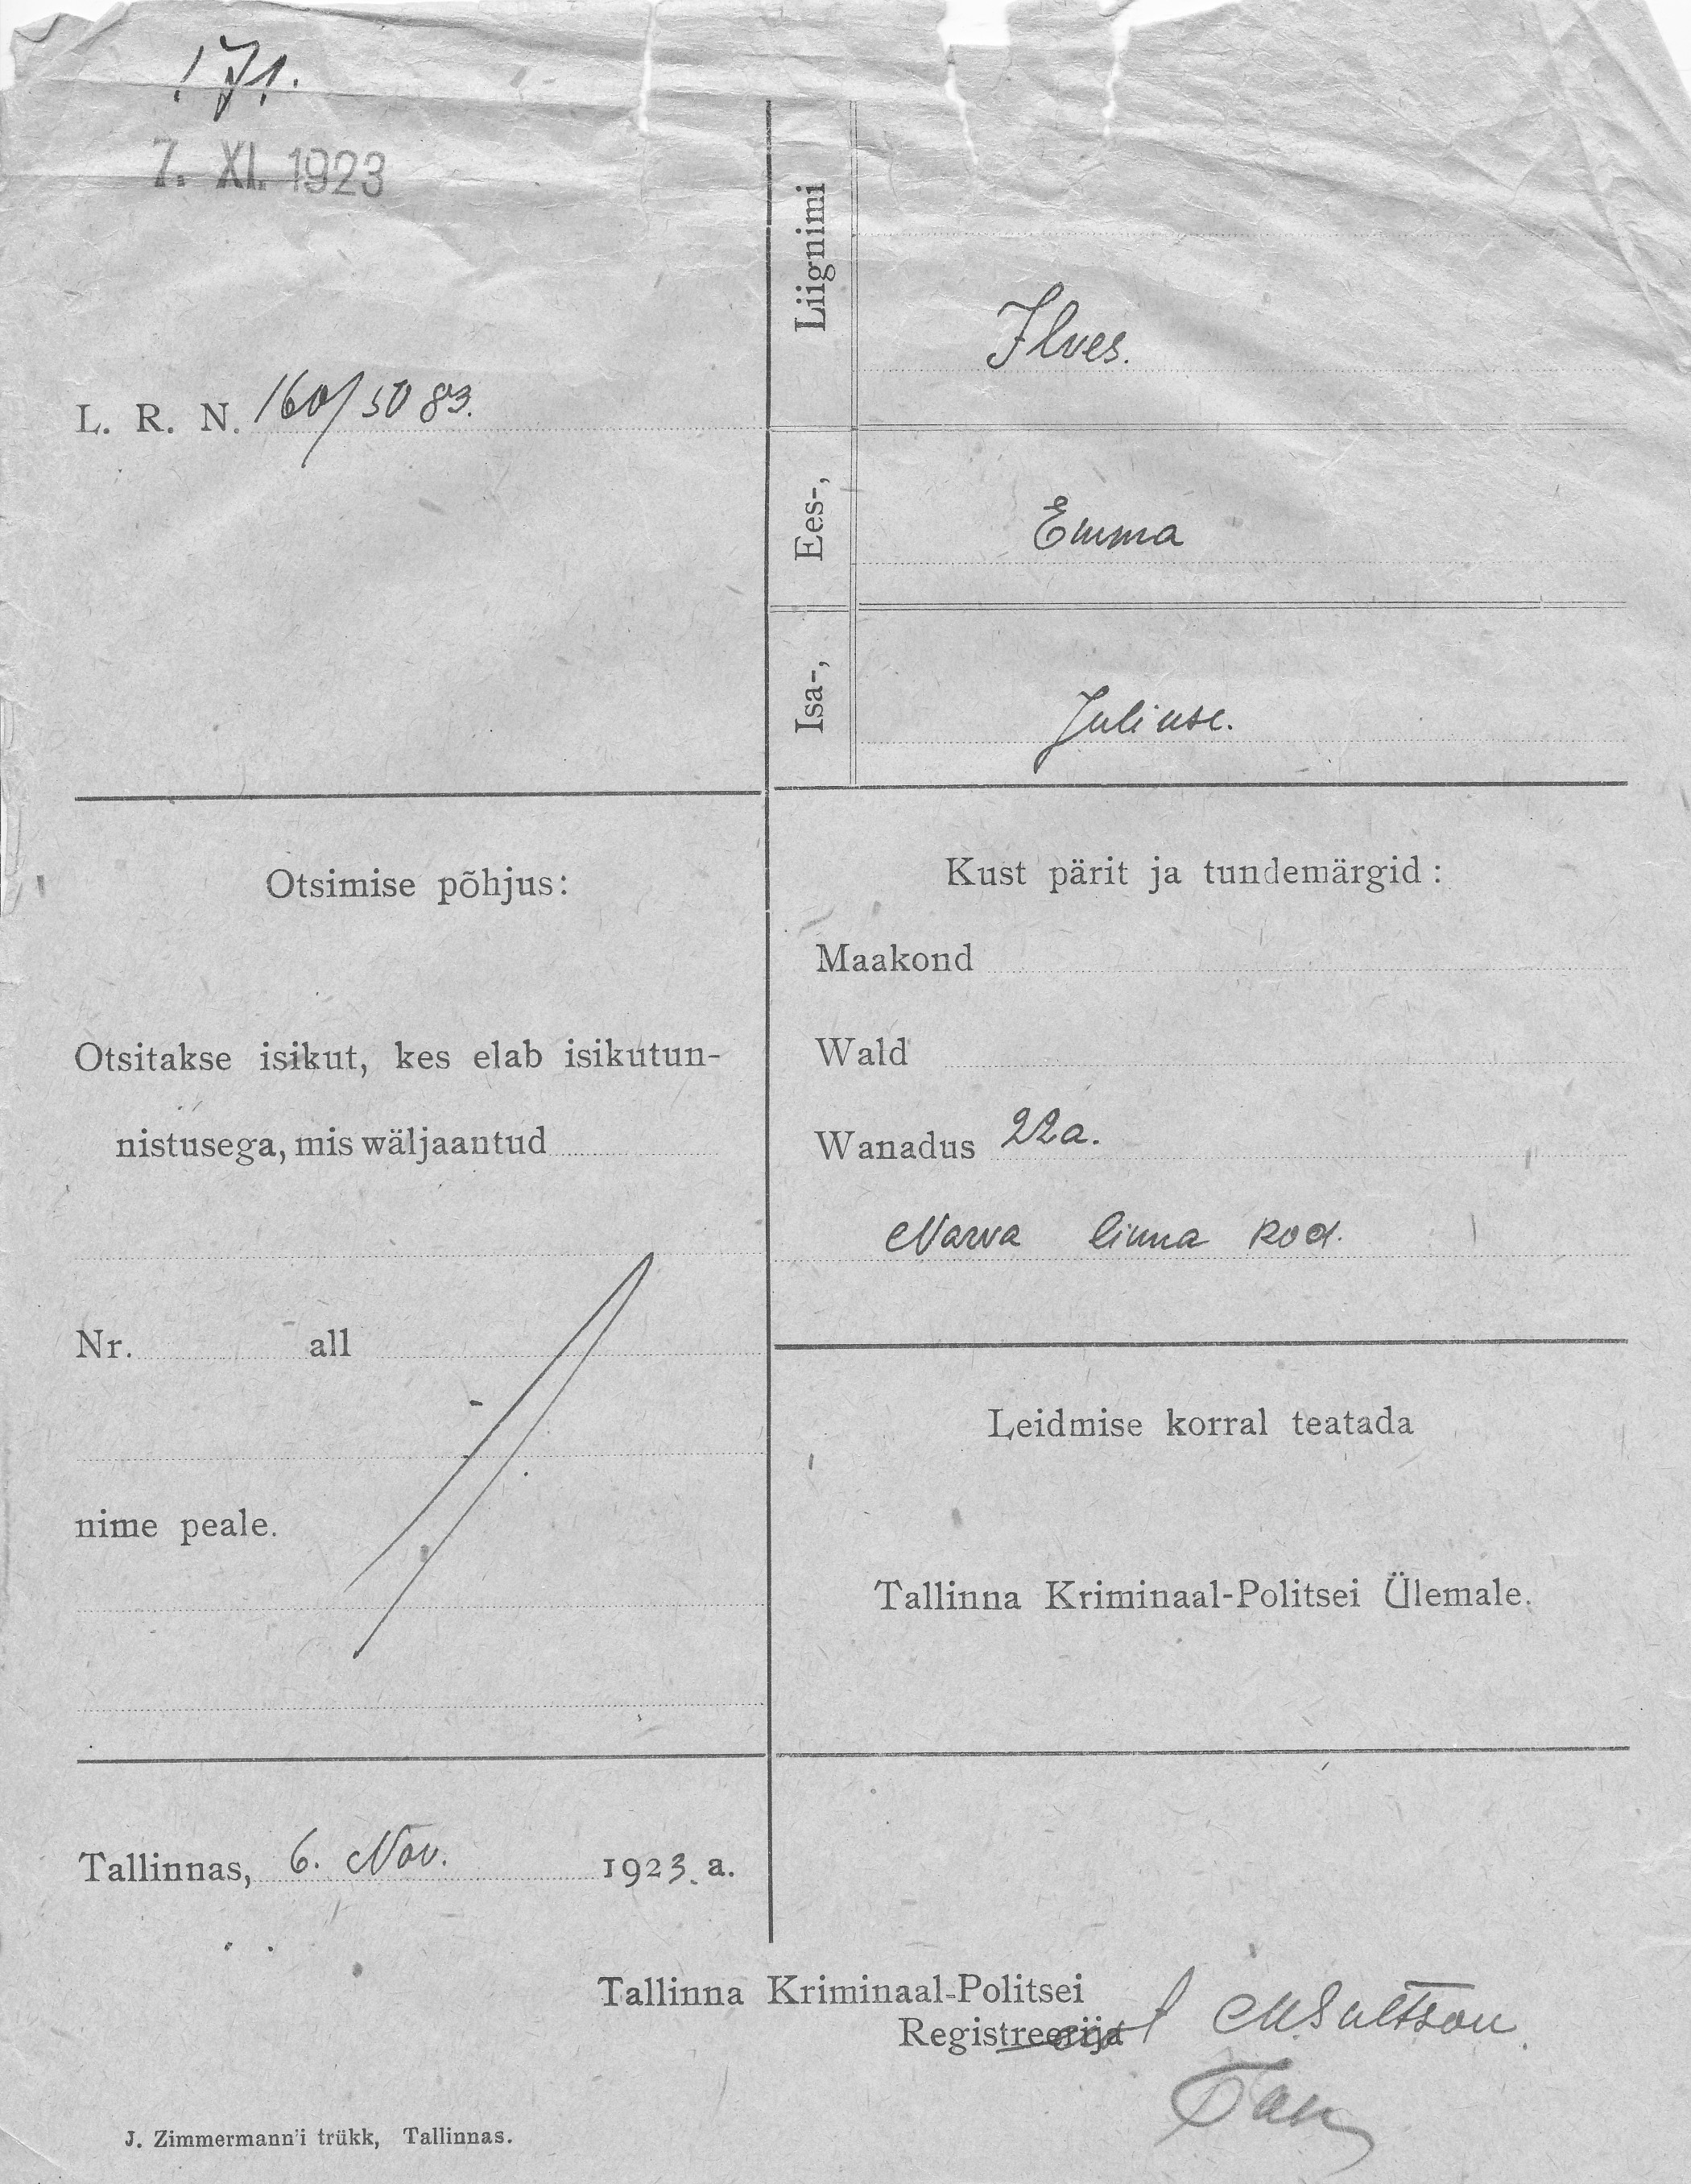 171.
7. XI. 1923
L. R. N. 160/5083.
Liignimi
Ilves.
Ees-,
Emma
Isa-,
Juliuse.
Otsimise põhjus:
Otsitakse isikut, kes elab isikutun-
nistusega, mis wäljaantud
Nr. all
nime peale.
Kust pärit ja tundemärgid:
Maakond
Wald
Wanadus 22a.
Narva linna kod.
Leidmise korral teatada
Tallinna Kriminaal-Politsei Ülemale.
Tallinnas, 6. Nov. 1923. a.
Tallinna Kriminaal-Politsei
Registreerija
J. Zimmermann'i trükk, Tallinnas.